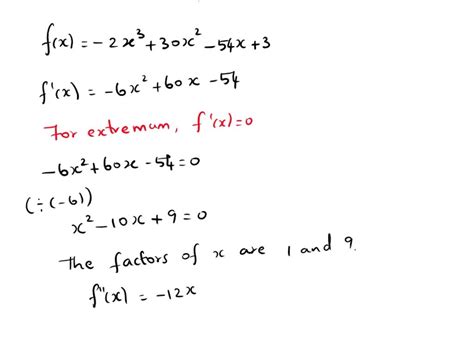 f(x) = -2x³+30x²-54x+3
f'(x) = -6x²+60x-54
For extremum, f'(x)=0
-6x²+60x-54=0
(÷(-6))
x²-10x+9=0
The factors of x are 1 and 9.
f"(x) = -12x